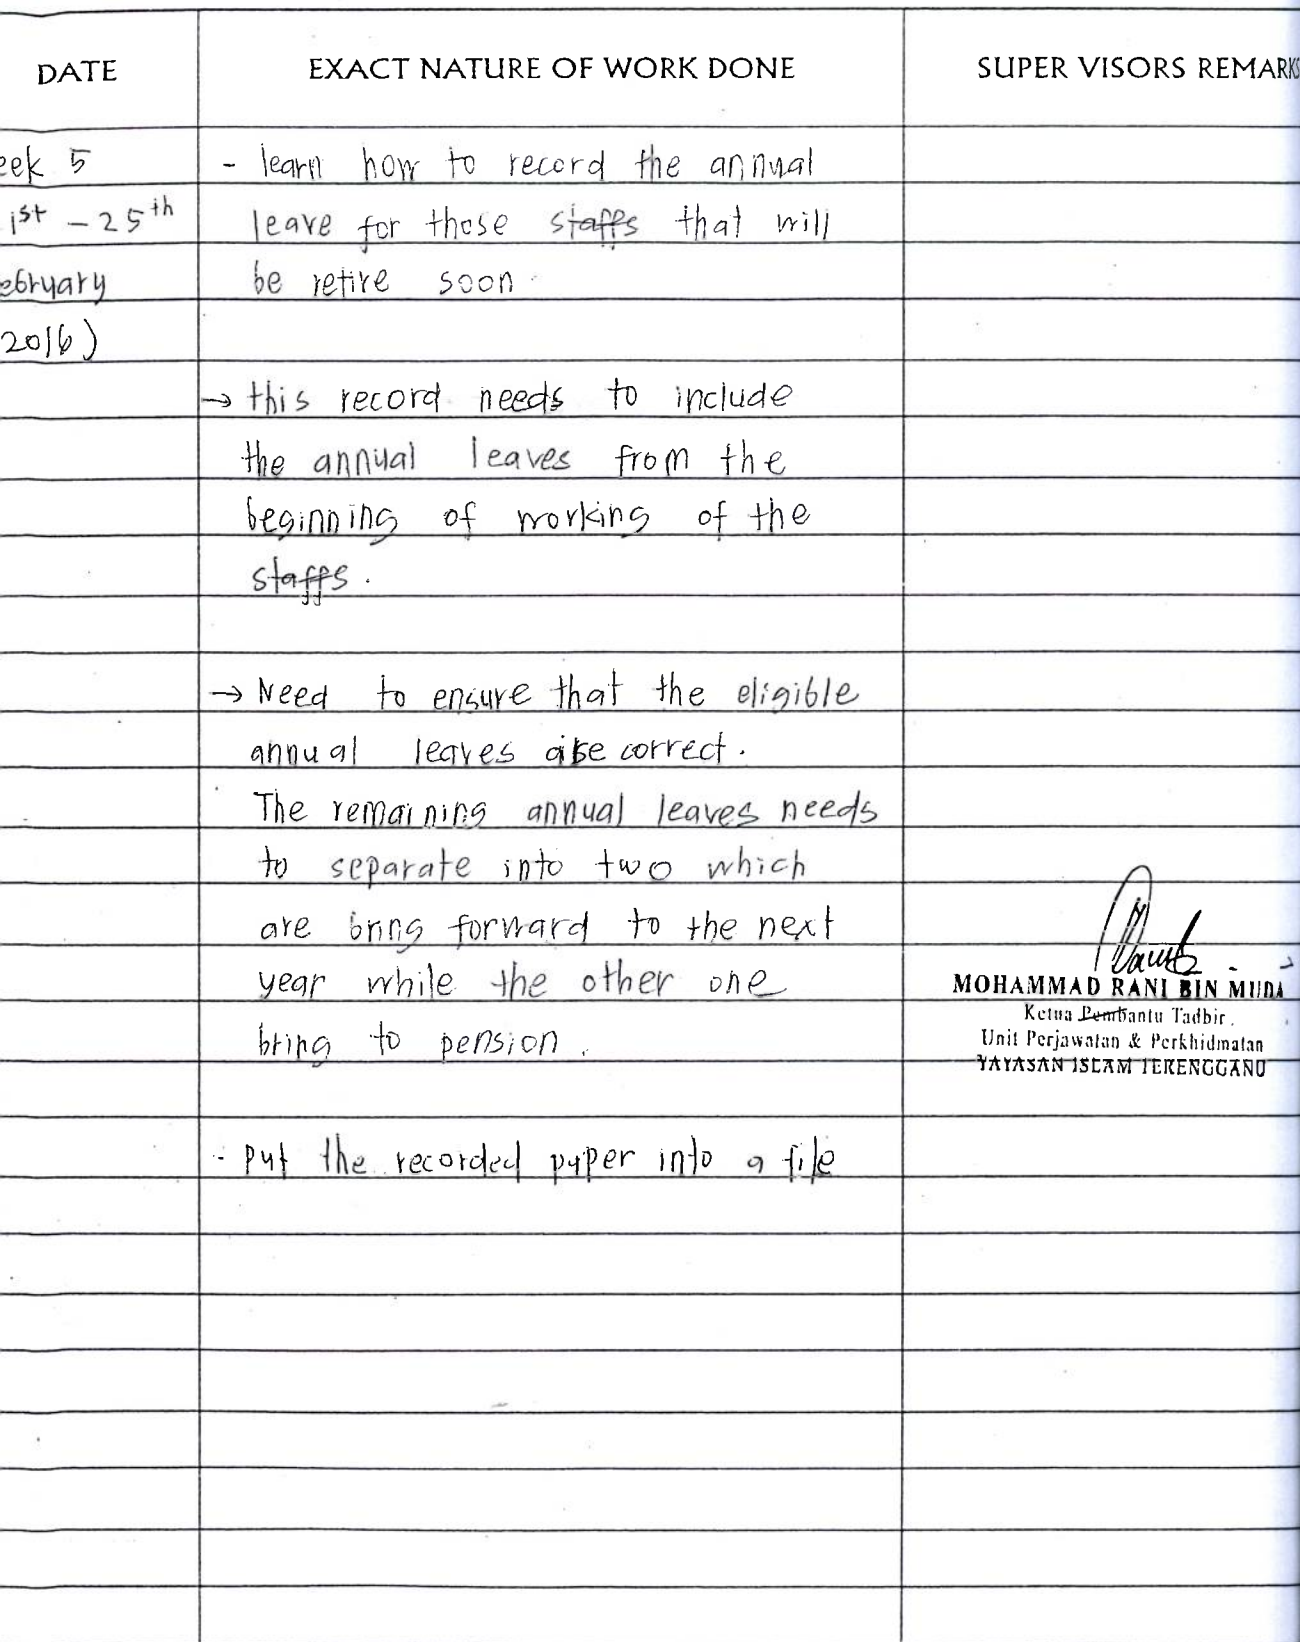 DATE EXACT NATURE OF WORK DONE SUPER VISORS REMARKS
eek 5 - learn how to record the annual
1st - 25th leave for those staffs that will
ebruary be retire soon.
2016)
→ this record needs to include
the annual leaves from the
beginning of working of the
staffs.
→ Need to ensure that the eligible
annual leaves are correct.
The remaining annual leaves needs
to separate into two which
are bring forward to the next
year while the other one
bring to pension.
MOHAMMAD RANI BIN MUDA
Ketua Pembantu Tadbir,
Unit Perjawatan & Perkhidmatan
YAYASAN ISLAM TERENGGANU
- Put the recorded paper into a file